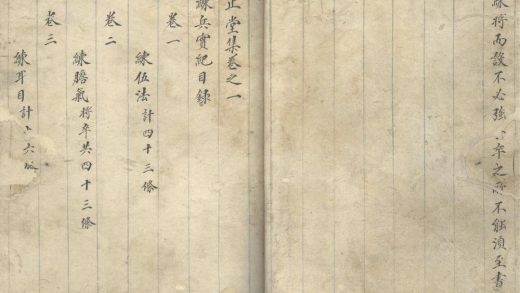 練將而設不必強 卒之 不能須至書
止堂集卷之一
練兵實紀目錄
卷一
練伍法計四十三條
卷二
練膽氣將卒共四十三條
卷三
練耳目計 六